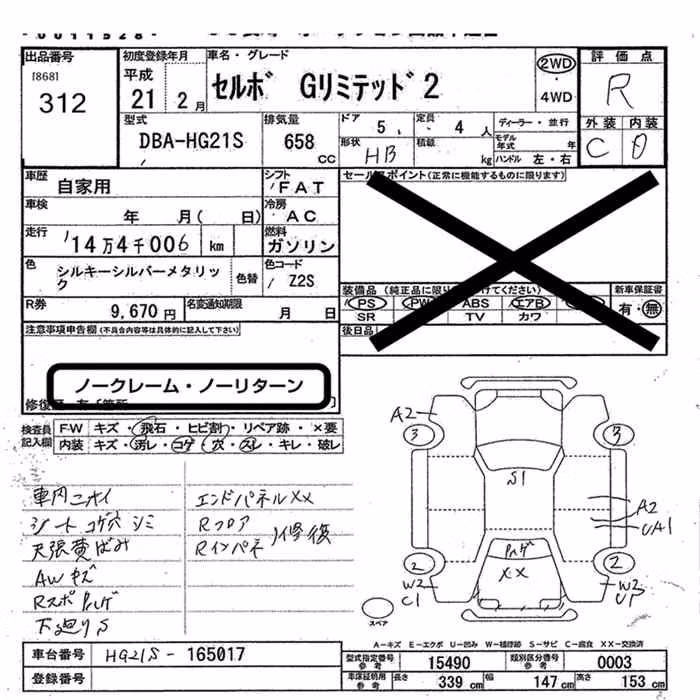 出品番号
[868]
312
初度登録年月
平成
21 2月
車名・グレード
セルボ Gリミテッド2
2WD
・
4WD
評価点
R
外装 内装
C D
型式
DBA-HG21S
排気量
658
CC
ドア
5
定員
4人
形状
HB
積載
kg
ディーラー・並行
モデル年式 年
ハンドル 左・右
車歴
自家用
シフト
FAT
車検
年 月( 日)
冷房
AC
走行
14万4千006 km
燃料
ガソリン
色
シルキーシルバーメタリック
色替
色コード
Z2S
R券
9,670円
名変通知期限
月 日
注意事項申告欄(不具合内容等は具体的に記入して下さい)
ノークレーム・ノーリターン
セールスポイント(正常に機能するものに限ります)
装備品
PS PW ABS エアB
SR TV カワ
新車保証書
有・無
後日品
検査員記入欄
FW キズ・飛石・ヒビ割・リペア跡・×要
内装 キズ・汚レ・コゲ・穴・スレ・キレ・破レ
車内ニオイ
シートコゲ穴シミ
天張黄ばみ
AWキズ
下廻りS
エンドパネルXX
Rフロア
Rインパネ
修復
A2
3
3
S1
A2
UA1
XX
2
2
W2
C1
W2
スペア
A-キズ E-エクボ U-凹み W-補修跡 S-サビ C-腐食 XX-交換済
車台番号
HG21S-165017
登録番号
型式指定番号
参考
15490
類別区分番号
参考
0003
車庫証明用
参考
長さ
339 cm
幅
147 cm
高さ
153 cm